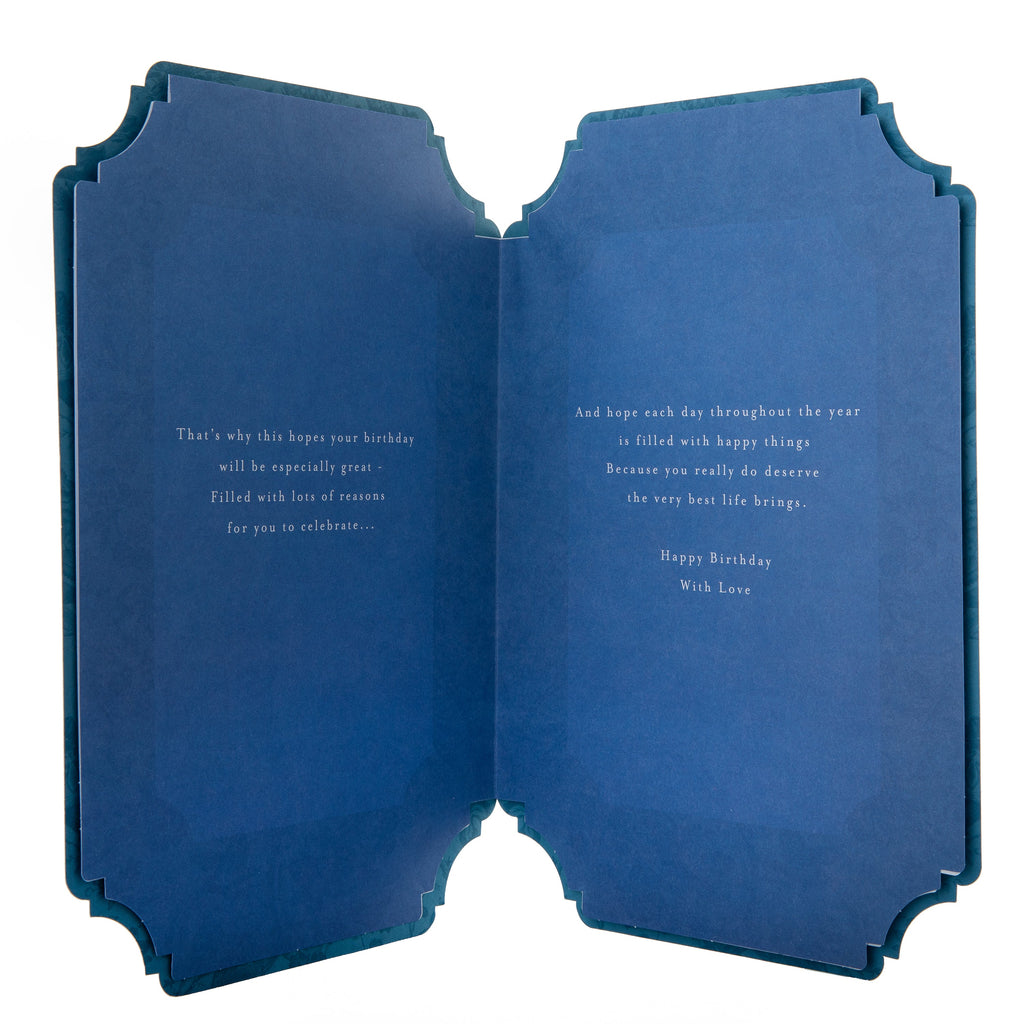 That's why this hopes your birthday
will be especially great -
Filled with lots of reasons
for you to celebrate...
And hope each day throughout the year
is filled with happy things
Because you really do deserve
the very best life brings.
Happy Birthday
With Love